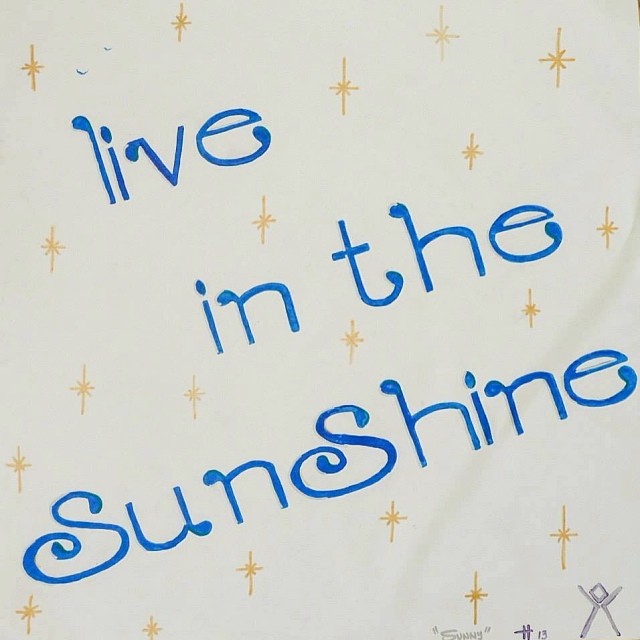 live
in the
sunshine
"SUNNY" #13